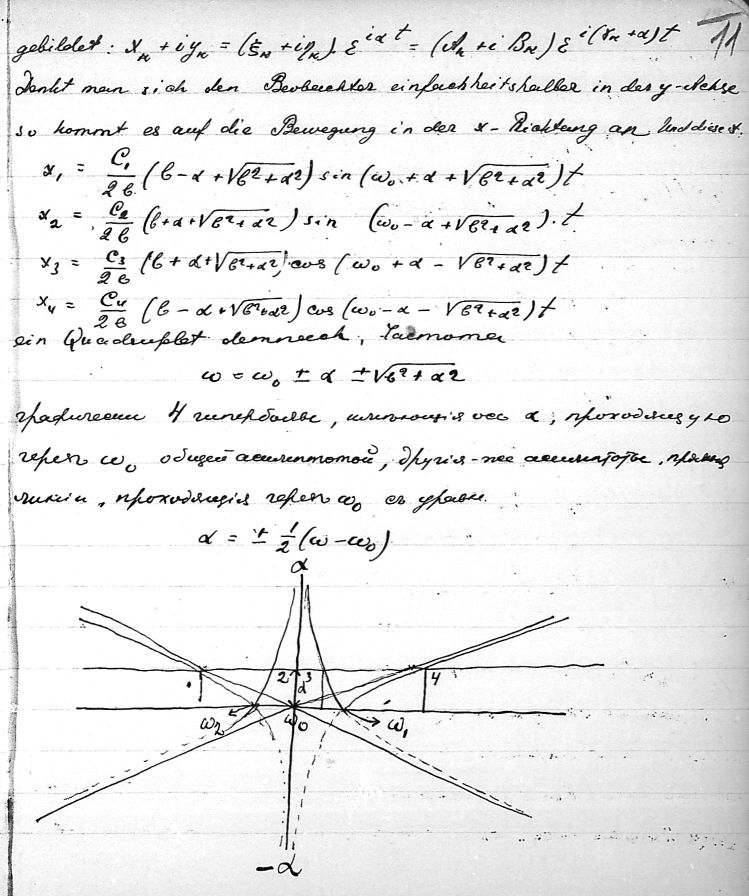 11
gebildet: xₖ + iyₖ = (ξₖ + iηₖ) · ε^{iαt} = (Aₖ + i Bₖ) ε^{i(γₖ+α)t}
Denkt man sich den Beobachter einfachheitshalber in der y-Achse
so kommt es auf die Bewegung in der x-Richtung an. Und diese ist.
x₁ = C₁/2b (b - α + √b²+α²) sin (ω₀ + α + √b²+α²) t
x₂ = C₂/2b (b + α + √b²+α²) sin (ω₀ - α + √b²+α²) · t.
x₃ = C₃/2b (b + α + √b²+α²) cos (ω₀ + α - √b²+α²) t
x₄ = C₄/2b (b - α + √b²+α²) cos (ω₀ - α - √b²+α²) t
ein Quadruplet demnach, частота
ω = ω₀ ± α ± √b²+α²
графически 4 гиперболы, имѣющія ось α, проходящую
черезъ ω₀ общей асимптотой, другія-же асимптоты, прямыя
линіи, проходящія черезъ ω₀ съ уравн.
α = ± 1/2 (ω - ω₀)
α
2 3 4
α
ω₂ ω₀ ω₁
-α